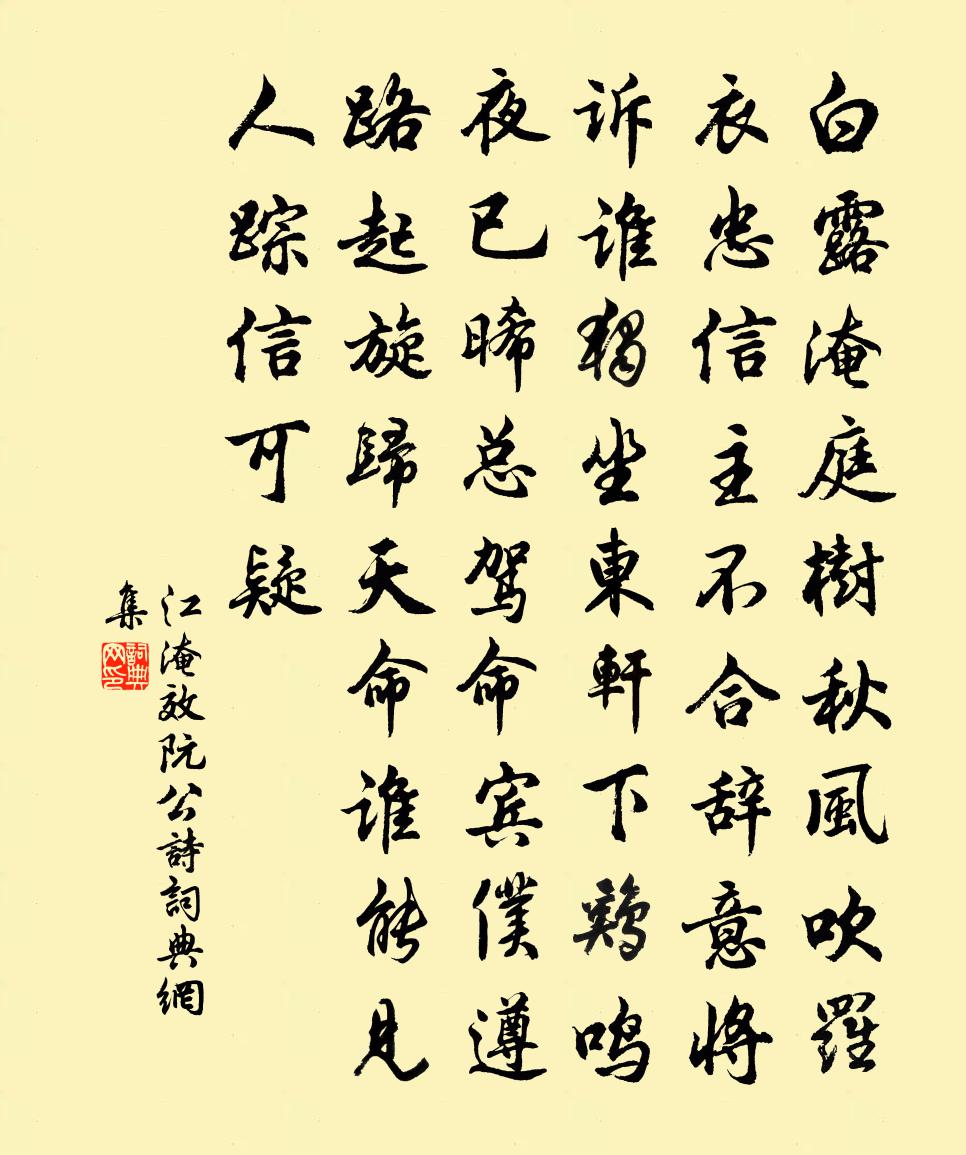 白露淹庭樹秋風吹羅
衣忠信主不合辞意將
诉谁獨坐東軒下鷄鸣
夜已晞总驾命宾僕遵
路起旋歸天命谁能見
人踪信可疑
江淹效阮公詩詞典網
集
詞典網印